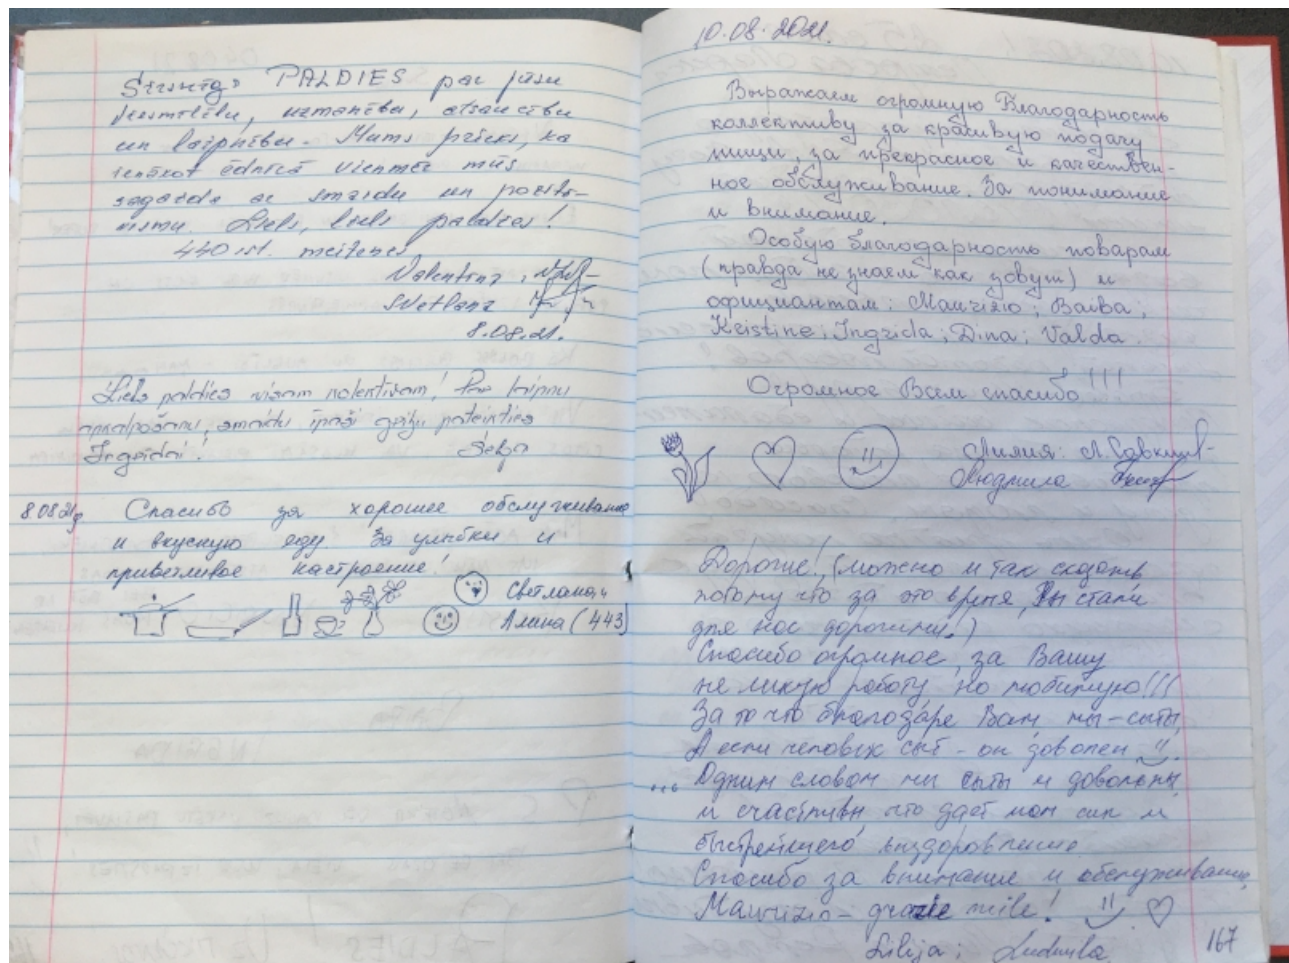 Sirsnīgs PALDIES par jūsu
viesmīlību, uzmanību, atsaucību
un laipnību. Mums prieks, ka
ienākot ēdnīcā vienmēr mūs
sagaida ar smaidu un pozitī-
vismu. Liels, liels paldies!
440 ist. meitenes
Valentīna,
Svetlana
8.08.21.
Liels paldies visam kolektīvam! Par laipnu
apkalpošanu, smaidu īpaši gribu pateikties
Ingrīdai!
8.08.21g Спасибо за хорошее обслуживание
и вкусную еду. За улыбки и
приветливое настроение!
Светлана и
Алина (443)
10.08.2021.
Выражаем огромную Благодарность
коллективу за красивую подачу
пищи, за прекрасное и качествен-
ное обслуживание. За понимание
и внимание.
Особую благодарность поварам
(правда не знаем как зовут) и
официантам: Маurizio; Baiba;
Kristine; Ingrida; Dina; Valda.
Огромное Вам спасибо!!!
Лилия: Л.
Людмила
Дорогие! (можно и так сказать
потому что за это время Вы стали
для нас дорогими!)
Спасибо огромное, за Вашу
не легкую работу но любимую!!!
За то что благодаре Вам мы - сыты,
А если человек сыт - он доволен
... Одним словом мы сыты и довольны
и счастливы что дает нам сил и
быстрейшего выздоровления
Спасибо за внимание и обслуживание
Maurizio - grazie mile!
Lilija; Ludmila
167